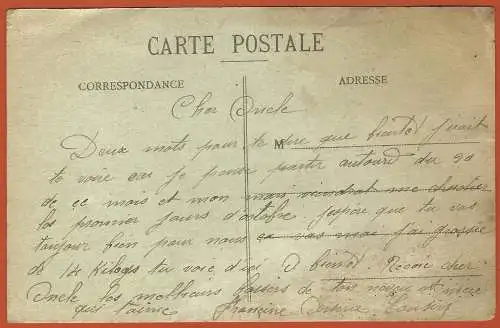 CARTE POSTALE
CORRESPONDANCE
ADRESSE
Cher Oncle
M
Deux mots pour te dire que bientot j'irait
te voire car je pense partir autour du 20
de ce mois et mon mari viendrat me chercher
les premier jours d'octobre. j'espere que tu vas
toujour bien pour nous ca vas moi j'ai grossie
de 14 kilogs tu voie d'ici a bientot Recoie cher
Oncle les meilleurs baisers de ton neveu et niece
qui t'aime Francine